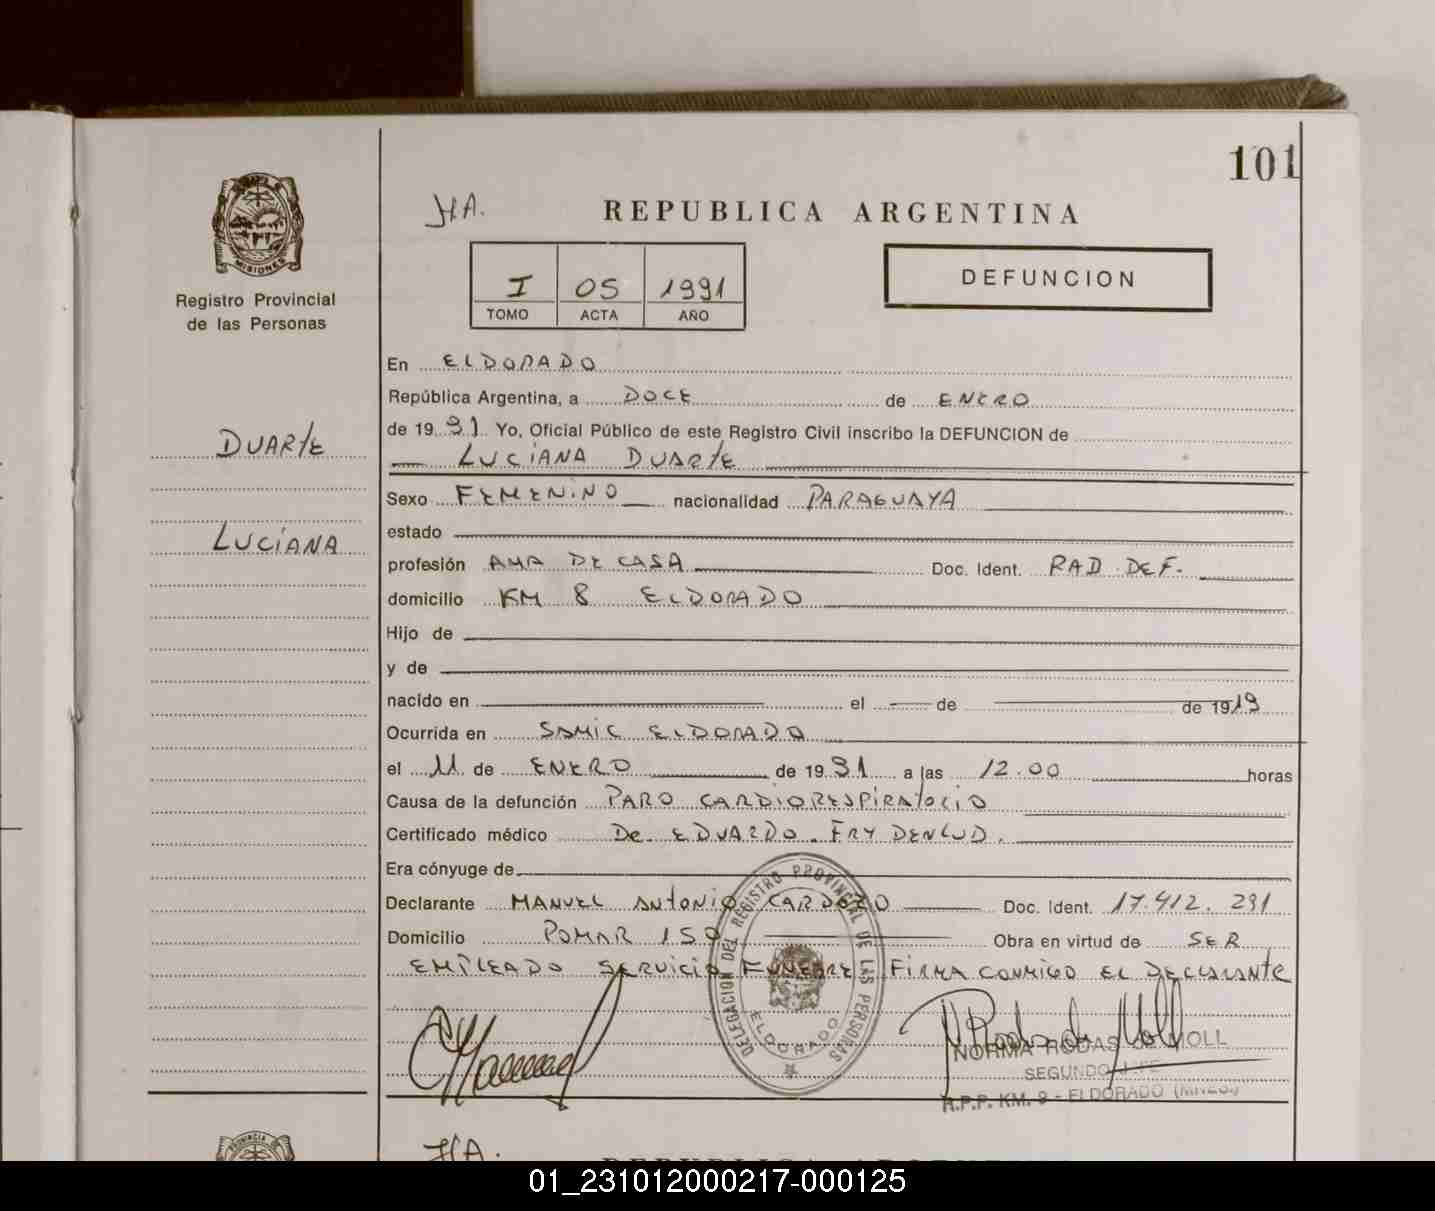 101
H.A.
REPUBLICA ARGENTINA
MISIONES
I OS 1991
TOMO ACTA AÑO
DEFUNCION
Registro Provincial
de las Personas
En ELDORADO
República Argentina, a DOCE de ENERO
de 1991 Yo, Oficial Público de este Registro Civil inscribo la DEFUNCION de
DUARTE
LUCIANA DUARTE
Sexo FEMENINO nacionalidad PARAGUAYA
LUCIANA
estado
profesión AMA DE CASA Doc. Ident. RAD. DEF.
domicilio KM 8 ELDORADO
Hijo de
y de
nacido en el de de 1919
Ocurrida en SAMIC ELDORADO
el 11 de ENERO de 1991 a las 12.00 horas
Causa de la defunción PARO CARDIORESPIRATORIO
Certificado médico De. EDUARDO. FRYDENLUD.
Era cónyuge de
Declarante MANUEL ANTONIO CARDOZO Doc. Ident. 17.412.291
Domicilio POMAR 150 Obra en virtud de SER
EMPLEADO SERVICIO FUNEBRE FIRMA CONMIGO EL DECLARANTE
DELEGACION DEL REGISTRO PROVINCIAL DE LAS PERSONAS
ELDORADO
NORMA RODAS de MOLL
SEGUNDO JEFE
R.P.P. KM. 9 - ELDORADO (MNES)
PROVINCIA DE
H.A.
REPUBLICA ARGENTINA
01_231012000217-000125